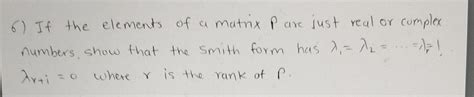 6) If the elements of a matrix P are just real or complex
numbers, show that the smith form has λ₁ = λ₂ = ... = λᵣ = 1
λᵣ₊ᵢ = 0 where r is the rank of P.